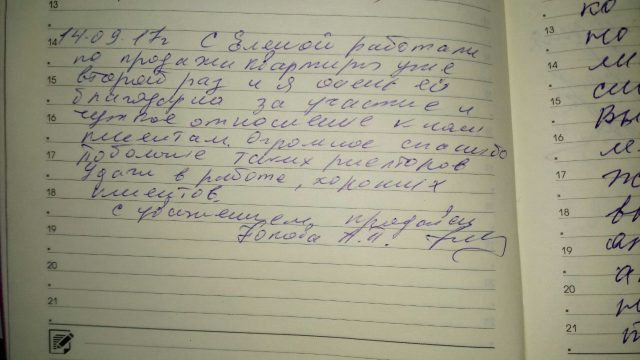 13
14
15
16
17
18
19
20
21
14.09.17г С Еленой работали
по продажи квартиры уже
второй раз и я очень ей
благодарна за участие и
чуткое отношение к нам
клиентам. Огромное спасибо
побольше таких риелторов
удачи в работе, хороших
клиентов.
С уважением продавец
А.П.
13
14
15
16
17
18
19
20
21
ко
по
ли
вы